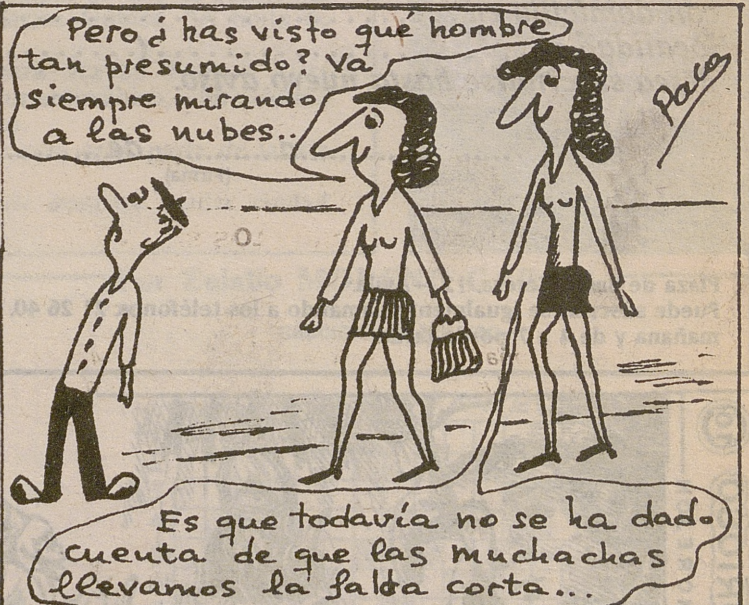 Pero ¿has visto qué hombre
tan presumido? Va
siempre mirando
a las nubes..
Paco
Es que todavía no se ha dado
cuenta de que las muchachas
llevamos la falda corta...